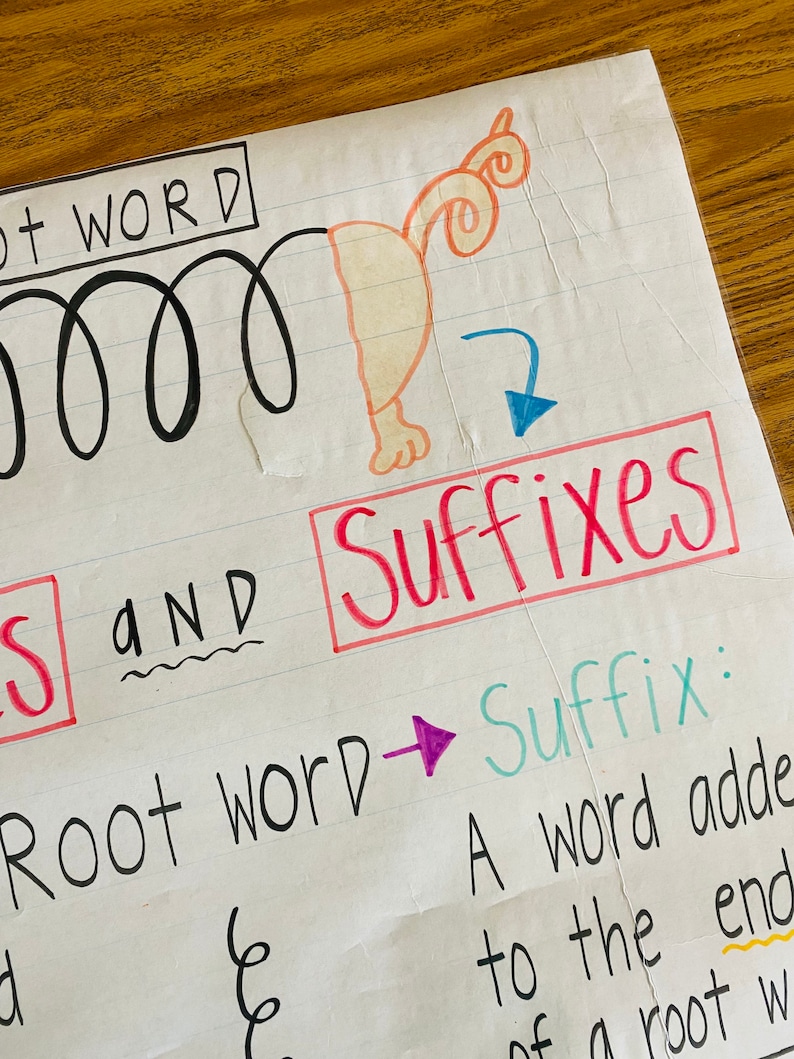 ot WORD
Suffixes
es aND
Root WOrD → Suffix:
A word adde
d to the end
of a root w